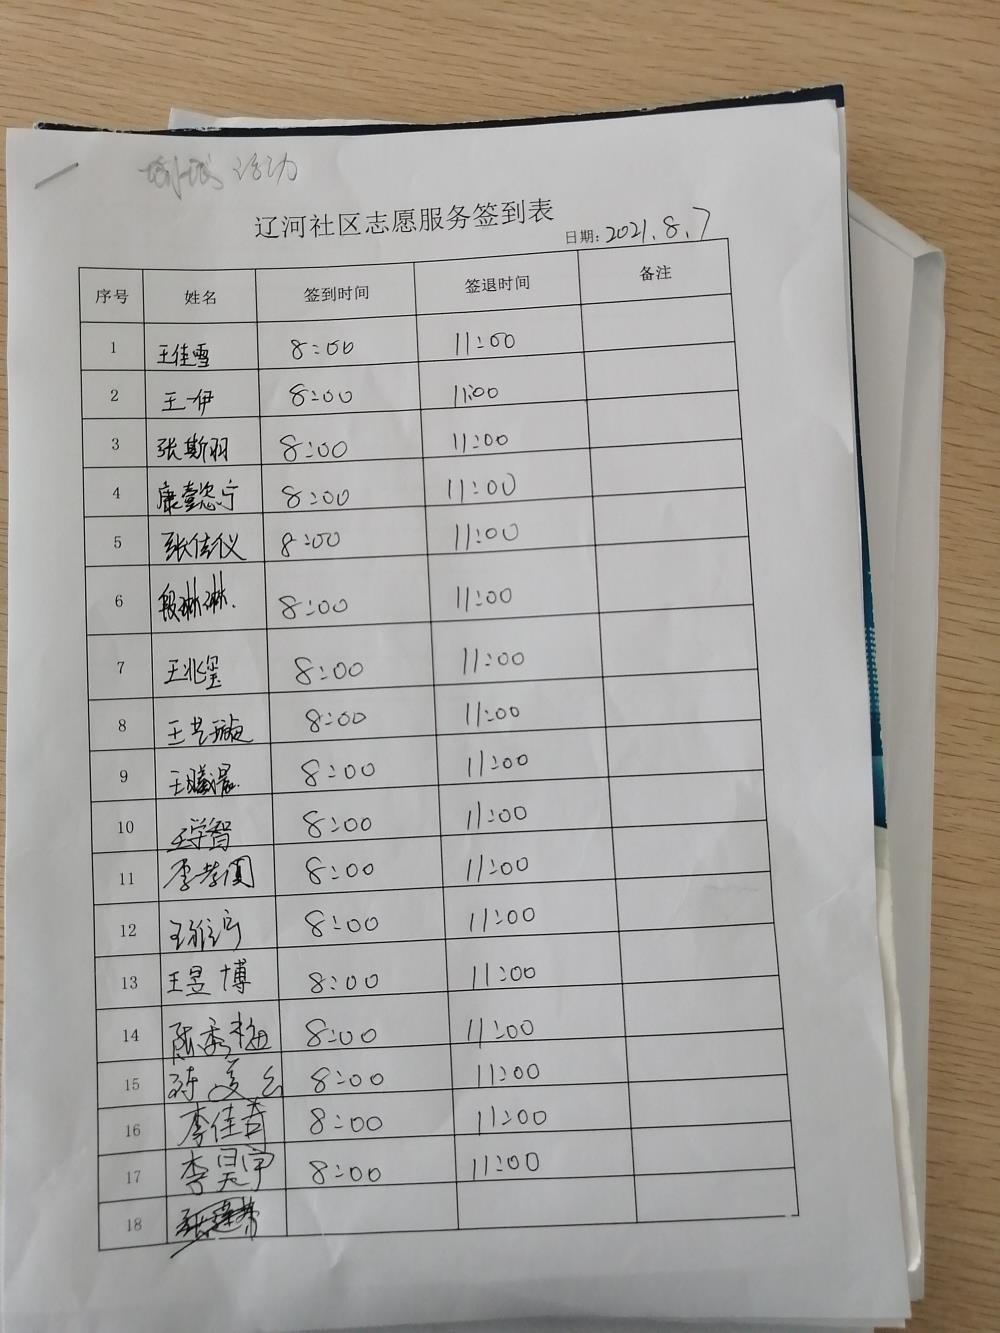 活动
辽河社区志愿服务签到表
日期: 2021.8.7
序号 姓名 签到时间 签退时间 备注
1 王佳雪 8:00 11:00
2 王一伊 8:00 11:00
3 张斯羽 8:00 11:00
4 康懿宁 8:00 11:00
5 张佳仪 8:00 11:00
6 段琳琳. 8:00 11:00
7 王兆玺 8:00 11:00
8 王艺璇 8:00 11:00
9 王曦晨 8:00 11:00
10 王学智 8:00 11:00
11 李 8:00 11:00
12 王雅 8:00 11:00
13 王昱博 8:00 11:00
14 陈秀梅 8:00 11:00
15 8:00 11:00
16 李佳 8:00 11:00
17 李昊宇 8:00 11:00
18